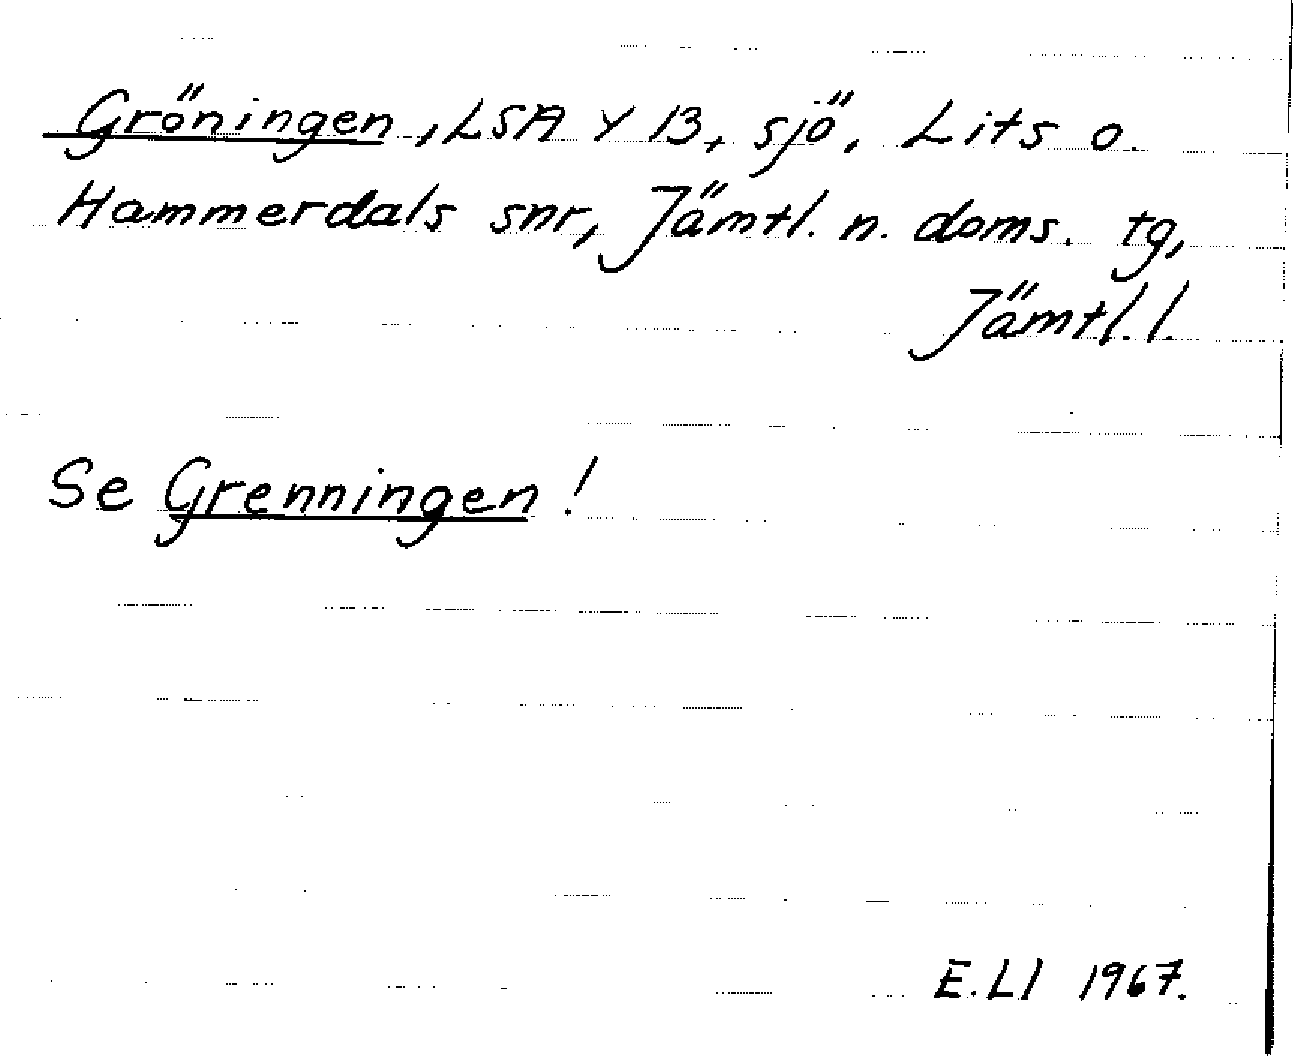 Gröningen, LSA Y 13, sjö, Lits o.
Hammerdals snr, Jämtl. n. doms. tg,
Jämtl. l.
Se Grenningen!
E.Ll 1967.